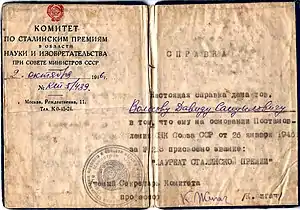 КОМИТЕТ
ПО СТАЛИНСКИМ ПРЕМИЯМ
В ОБЛАСТИ
НАУКИ И ИЗОБРЕТАТЕЛЬСТВА
ПРИ СОВЕТЕ МИНИСТРОВ СССР
2 октября 1946 г.
№
Москва, Рождественка, 11.
Тел. К 0-15-21.
СПРАВКА
Настоящая справка дана тов.
Давиду
в том, что ему на основании Постанов-
ления НК Союза ССР от 26 января 1946
за присвоено звание:
"ЛАУРЕАТ СТАЛИНСКОЙ ПРЕМИИ"
Ученый Секретарь Комитета
профессор